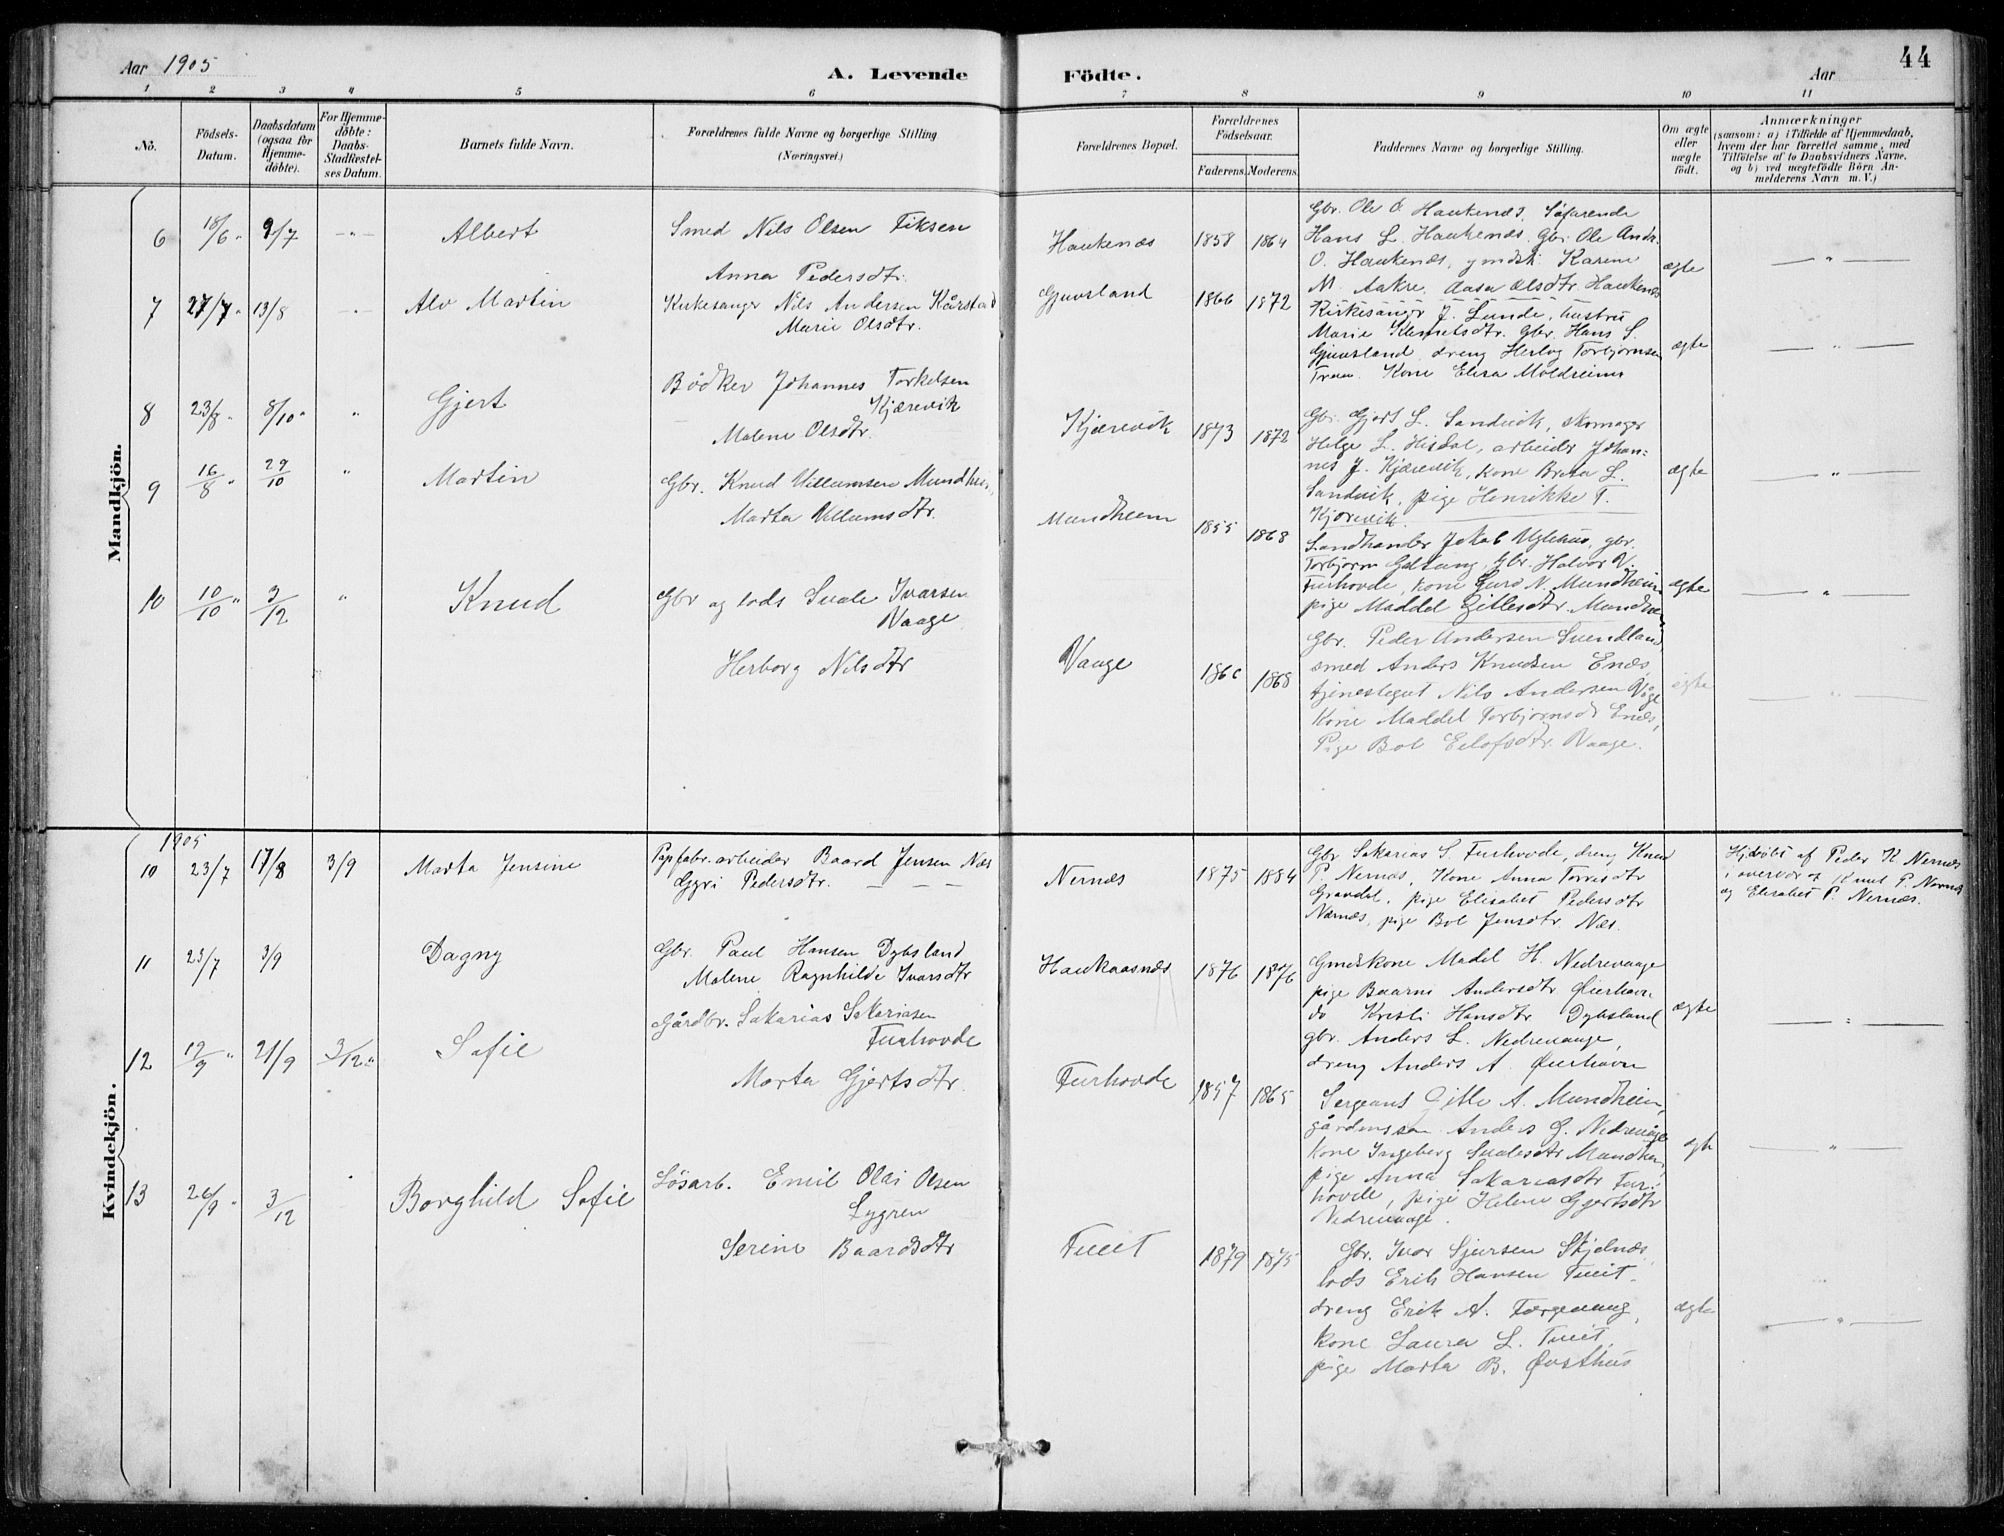 Aar 1905
A. Levende
Födte.
Aar
44
1 2 3 4 5 6 7 8 9 10 11
No.
Födsels-Datum.
Daabsdatum (ogsaa for Hjemme-döbte).
For Hjemme-döbte: Daabs-Stadfæstel-ses Datum.
Barnets fulde Navn.
Forældrenes fulde Navne og borgerlige Stilling (Næringsvei.)
Forældrenes Bopæl.
Forældrenes Födselsaar.
Faderens. Moderens.
Faddernes Navne og borgerlige Stilling.
Om ægte eller nægte födt.
Anmærkninger
(saasom: a) i Tilfælde af Hjemmedaab,
hvem der har forrettet samme, med
Tilföielse af to Daabsvidners Navne,
og b) ved uægtefödte Börn An-
melderens Navn m. V.)
Mandkjön.
6 18/6 " 9/7 -"- Albert
Smed Nils Olsen Fiksen
Anna Pedersdtr.
Haukenæs 1858 1864
Gbr. Ole O. Haukenæs, Søfarende
Hans L. Haukenæs, Gbr. Ole Andr.
O. Haukenæs, gmdsk Karene
M. Aakre, Aasa Olsdtr Haukenæs
ægte — " —
7 27/7 " 13/8 -"- Alv Martin
Kirkesanger Nils Andersen Kårstad
Marie Olsdtr.
Gjuvsland 1866 1872
Kirkesanger J. Lunde, hustru
Marie Klemetsdtr. Gbr. Hans S.
Gjuvsland, dreng Herlog Torbjørnsen
Kone Elisa Moldheim
ægte — " —
8 23/8 " 8/10 " " Gjert
Bödker Johannes Torkelsen
Kjærevik
Malene Olsdtr.
Kjærevik 1873 1872
Gbr. Gjert L. Sandvik, skomager
Helge L. Hisdal, arbeider Johan=
nes J. Kjærevik, kone Brita L.
Sandvik, pige Henrikke T.
Kjærevik.
ægte — " —
9 16/8 " 29/10 " Martin
Gbr. Knud Villumsen Mundheim
Marta Villumsdtr.
Mundheim 1855 1868
Landhandler Jakob Uglehus, gbr.
Torbjørn Gdtang, Gbr. Halvor V.
Furhovde, kone Guro N. Mundheim
pige Maddel Gitlesdtr. Mundheim
ægte — " —
10 10/10 " 3/12 " Knud
Gbr og lods Svale Ivarsen
Vaage
Herborg Nilsdtr
Vaage 1868
Gbr. Peder Andersen Svendland
smed Anders Knudsen Enæs,
tjenestegut Nils Andersen Våge
Kone Maddel Torbjørnsd Enæs,
Pige Bol Eilofsdtr. Vaage.
ægte — " —
Kvindekjön.
1905
10 23/7 17/8 3/9 Marta Jensine
Papfabr. arbeider Baard Jensen Næs
Gyri Pedersdtr. — — —
Nernæs 1875 1884
Gbr Sakarias S. Furhovde, dreng Knud
P. Nernæs, Kone Anna Torresdtr
Gravdal, pige Elisabet Pedersdtr
Nærnæs, pige Bol Jensdtr Næs.
Hjdøbt af Peder K. Nernæs
i overvær af Knut P. Nernæs
og Elisabet P. Nernæs.
11 23/7 3/9 Dagny
Gbr. Paul Hansen Dybsland
Malene Ragnhilde Ivarsdtr
Haukaasnæs 1876 1876
Gmdskone Madel H. Nedrevaage
pige Baarni Andersdtr Øierhavn
do Kristi Hansdtr Dybsland
gbr. Anders L. Nedrevaage,
dreng Anders A. Øierhavn
ægte — " —
12 12/9 " 21/9 3/12 " Sofie
Gårdbr. Sakarias Sakariasen
Furhovde
Marta Gjertsdtr.
Furhovde 1857 1865
Sergeant Gitle A. Mundheim,
gårdmssøn Anders G. Nedrevåge
kone Ingeborg Svalesdtr Mundheim,
pige Anna Sakariasdtr Fur-
hovde, pige Helene Gjertsdtr
Nedrevaage.
ægte — " —
13 26/9 " 3/12 " Borghild Sofie
Lösarb. Emil Olai Olsen
Lygren
Serine Baardsdtr
Tveit 1879 1875
Gbr. Ivar Sjursen Skjelnæs,
lods Erik Hansen Tveit.
dreng Erik A. Færgevaag,
kone Laura L. Tveit,
pige Marta B. Øvsthus
ægte — " —